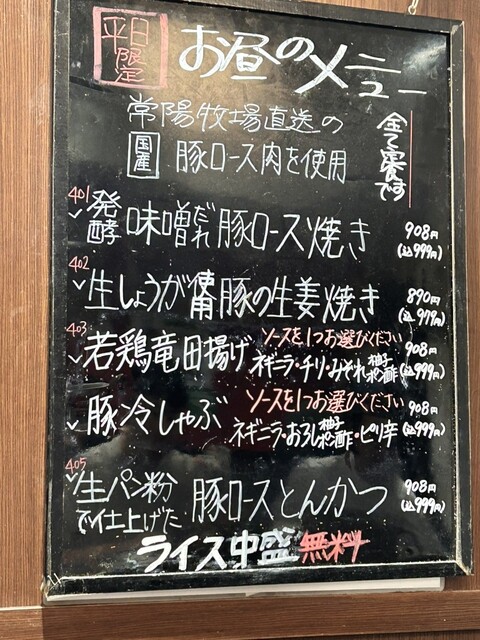 平日限定 お昼のメニュー
常陽牧場直送の
国産 豚ロース肉を使用
全て実です
401 発酵味噌だれ豚ロース焼き 908円
(込999円)
402 生しょうが使用豚の生姜焼き 890円
(込979円)
403 ソースを1つお選びください
若鶏竜田揚げ ネギニラ・チリ・みぞれ・柚子ポン酢 908円
(込999円)
ソースを1つお選びください
豚冷しゃぶ ネギニラ・おろし・柚子ポン酢・ピリ辛 908円
(込999円)
405 生パン粉で仕上げた 豚ロースとんかつ 908円
(込999円)
ライス中盛無料